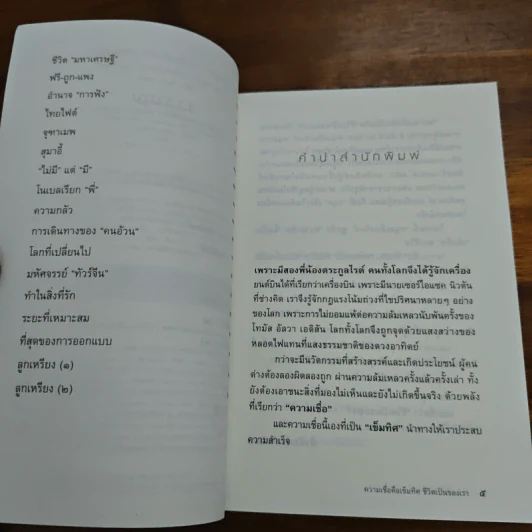 ชีวิต "มหาเศรษฐี"
ฟรี-ถูก-แพง
อำนาจ "การฟัง"
ไทยไฟต์
จุฑาเมพ
สุมาอี้
"ไม่มี" แต่ "มี"
โนเบลเรียก "พี่"
ความกลัว
การเดินทางของ "คนอ้วน"
โลกที่เปลี่ยนไป
มหัศจรรย์ "ทัวร์จีน"
ทำในสิ่งที่รัก
ระยะที่เหมาะสม
ที่สุดของการออกแบบ
ลูกเหรียง (๑)
ลูกเหรียง (๒)
คำนำสำนักพิมพ์
เพราะมีสองพี่น้องตระกูลไรต์ คนทั้งโลกจึงได้รู้จักเครื่อง
ยนต์บินได้ที่เรียกว่าเครื่องบิน เพราะมีนายเซอร์ไอแซค นิวตัน
ที่ช่างคิด เราจึงรู้จักกฎแรงโน้มถ่วงที่ไขปริศนาหลายๆ อย่าง
ของโลก เพราะการไม่ยอมแพ้ต่อความล้มเหลวนับพันครั้งของ
โทมัส อัลวา เอดิสัน โลกทั้งโลกจึงถูกจุดด้วยแสงสว่างของ
หลอดไฟแทนที่แสงธรรมชาติของดวงอาทิตย์
กว่าจะมีนวัตกรรมที่สร้างสรรค์และเกิดประโยชน์ ผู้คน
ต่างต้องลองผิดลองถูก ผ่านความล้มเหลวครั้งแล้วครั้งเล่า ทั้ง
ยังต้องเอาชนะสิ่งที่มองไม่เห็นและยังไม่เกิดขึ้นจริง ด้วยพลัง
ที่เรียกว่า "ความเชื่อ"
และความเชื่อนี้เองที่เป็น "เข็มทิศ" นำทางให้เราประสบ
ความสำเร็จ
ความเชื่อคือเข็มทิศ ชีวิตเป็นของเรา ๕